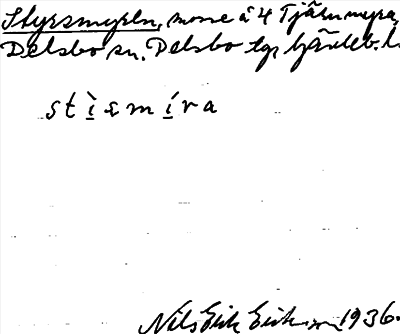 Styrsmyrln, mosse å 4 Tjärnmyra,
Delsbo sn. Delsbo tg,
stìsmíra
Nils Erik Eriksson 1936.